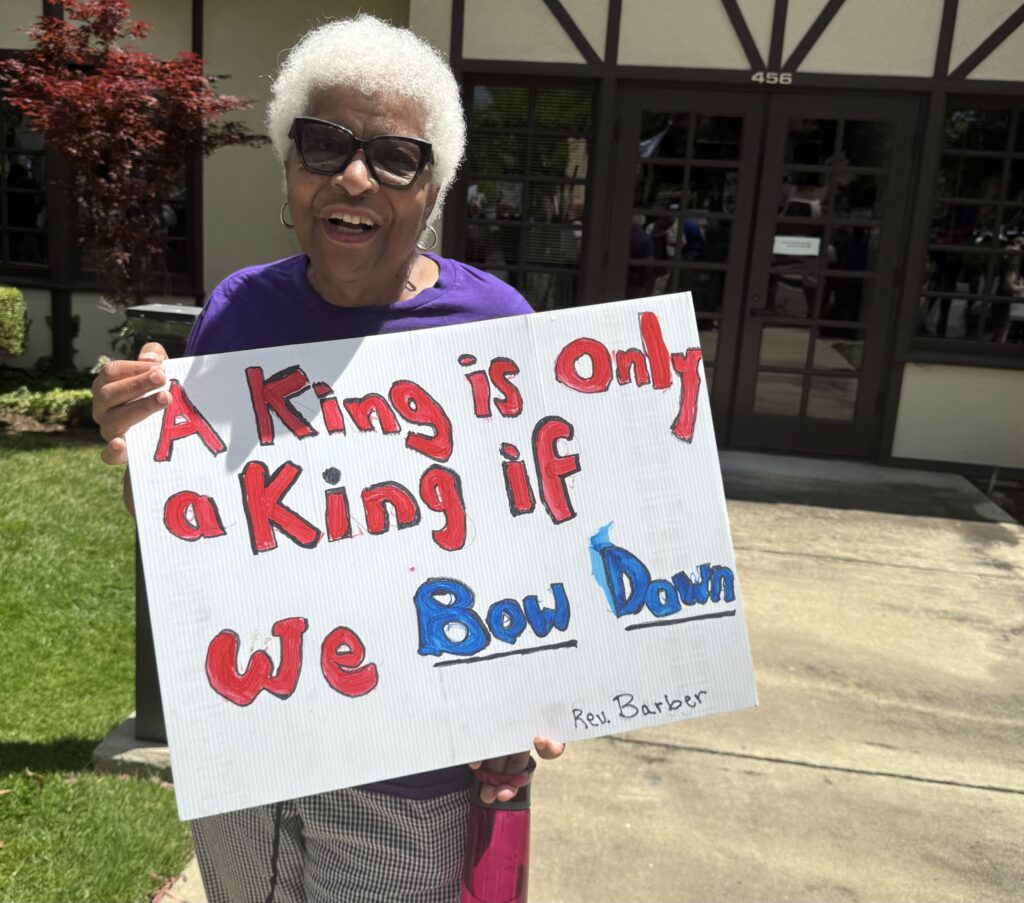 456
A King is only
a King if
we Bow Down
Rev. Barber